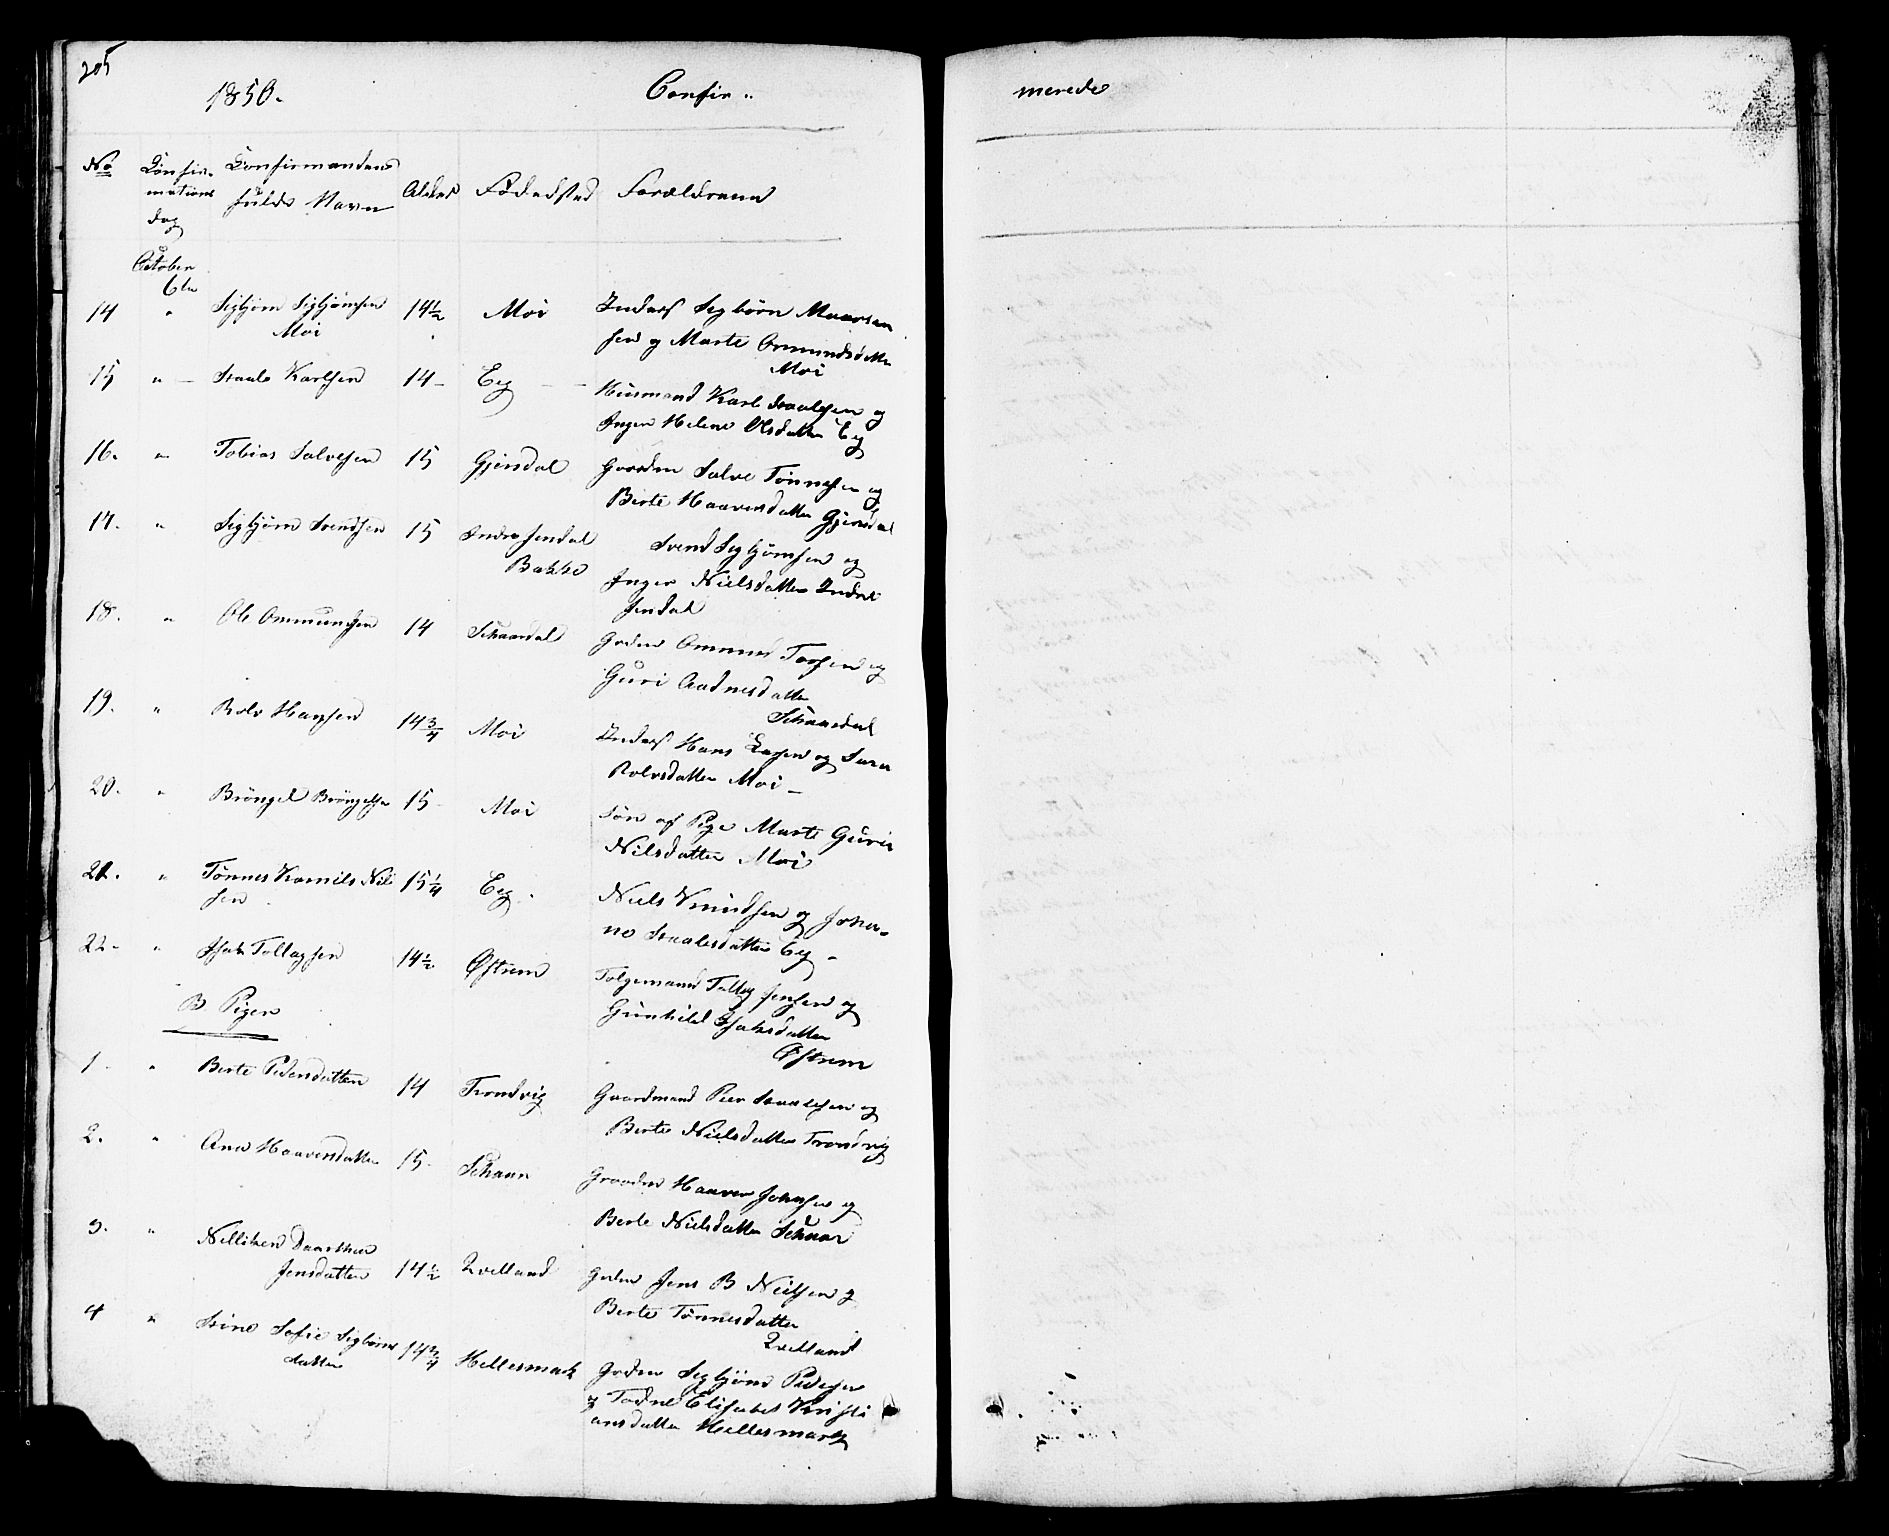 205
1850. Confir- merede
No Confir- Confirmandens Alder Fødested Forældrene
mations fulde Navn
dag
October
6te
14 " Sigbjørn Sigbjørnsen 14½ Moi Inders Sigbørn
Moi sen og Marte Ommundsdatter
Moi
15 " Staale Karlsen 14 Eeg Husmand Karl Staalesen og
Inger Helene Olsdatter Eeg
16. " Tobias Salvesen 15 Gjersdal Gaardm Salve Tønnesen og
Berte Haaversdatter Gjersdal
17. " Sigbjørn Svendsen 15 Indresendal Svend Sigbjørnsen og
Bakke Inger Nielsdatter Indre
sendal
18. " Ole Ommundsen 14 Skaardal Grdm Ommund Torsen og
Guri Aadnesdatter
Skaardal
19. " Rolv Hansen 14¾ Moi Inders Hans Larsen og Sara
Rolvsdatter Moi
20. " Brøngel Brøngelsen 15 Moi Søn af Pige Marte Guria
Nilsdatter Moi
21. " Tønnes Kornils Nil 15¼ Eeg Niels Knudsen og Johan-
sen ne Staalesdatter Eeg
22 " Isak Tollagsen 14½ Østrem Folgemand Tollag Jensen og
Gunhild Isaksdatter
Østrem
B. Piger
1 " Berte Pedersdatter 14 Trondvig Gaardmand Peer Staalesen og
Berte Nielsdatter Trondvig
2. " Ane Haaversdatter 15 Skaar Gaardm Haaver Johnsen og
Berte Nielsdatter Skaar
3. " Nilliken Daarthea Jensdatter 14½ Qvelland Grdm Jens B Nielsen og
Berte Tønnesdatter
Qvelland
4 " Stine Sofie Sigbørns 14¾ Hellesmark Grdm Sigbjørn Pedersen
datter og Todne Elisabet Kristi
ansdatter Hellesmark